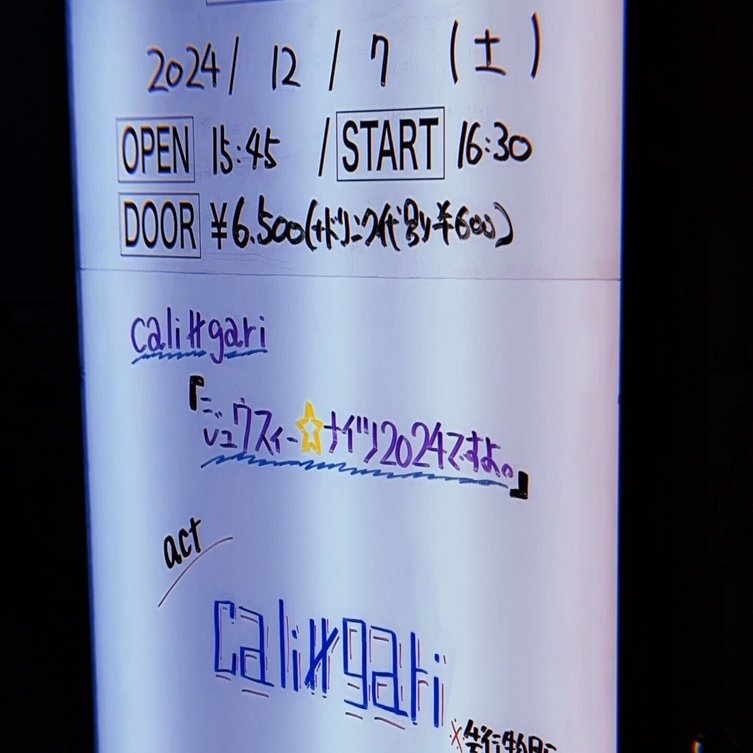 2024/ 12 / 7 (土)
OPEN 15:45 /START 16:30
DOOR ¥6.500(+ドリンク代別り¥600)
cali≠gari
『ジュウスィー☆ナイツ2024ですよ。』
act
cali≠gari